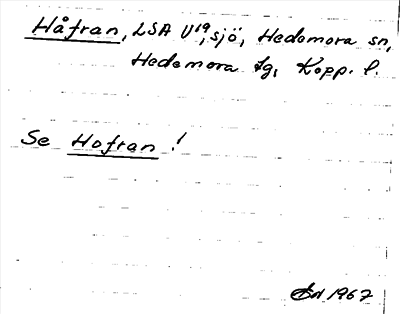 Håfran, LSA V19, sjö, Hedemora sn,
Hedemora tg, Kopp. l.
Se Hofran!
1967